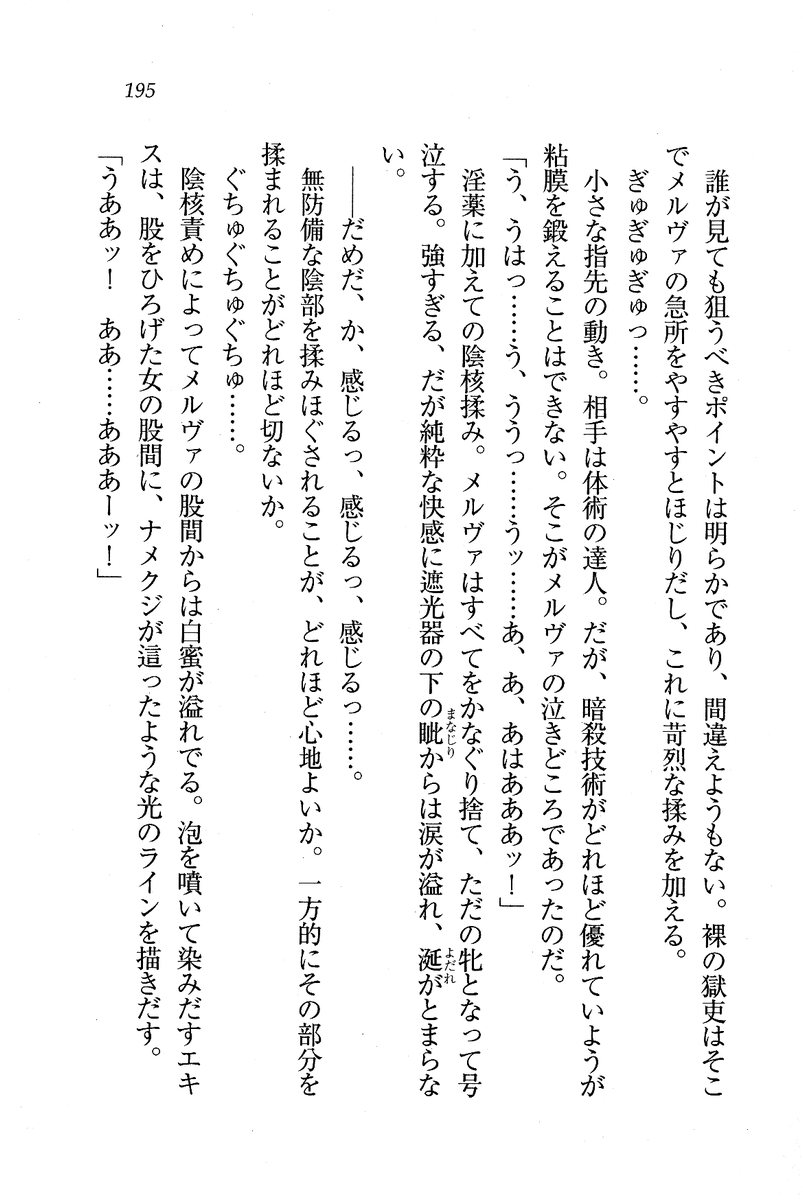 195
誰が見ても狙うべきポイントは明らかであり、間違えようもない。裸の獄吏はそこ
でメルヴァの急所をやすやすとほじりだし、これに苛烈な揉みを加える。
ぎゅぎゅぎゅっ……。
小さな指先の動き。相手は体術の達人。だが、暗殺技術がどれほど優れていようが
粘膜を鍛えることはできない。そこがメルヴァの泣きどころであったのだ。
「う、うはっ……う、ううっ……うッ……あ、あ、あはあああッ！」
淫薬に加えての陰核揉み。メルヴァはすべてをかなぐり捨て、ただの牝となって号
泣する。強すぎる、だが純粋な快感に遮光器の下の眦まなじりからは涙が溢れ、涎よだれがとまらな
い。
――だめだ、か、感じるっ、感じるっ、感じるっ……。
無防備な陰部を揉みほぐされることが、どれほど心地よいか。一方的にその部分を
揉まれることがどれほど切ないか。
ぐちゅぐちゅぐちゅ……。
陰核責めによってメルヴァの股間からは白蜜が溢れでる。泡を噴いて染みだすエキ
スは、股をひろげた女の股間に、ナメクジが這ったような光のラインを描きだす。
「うああッ！　ああ……あああーッ！」